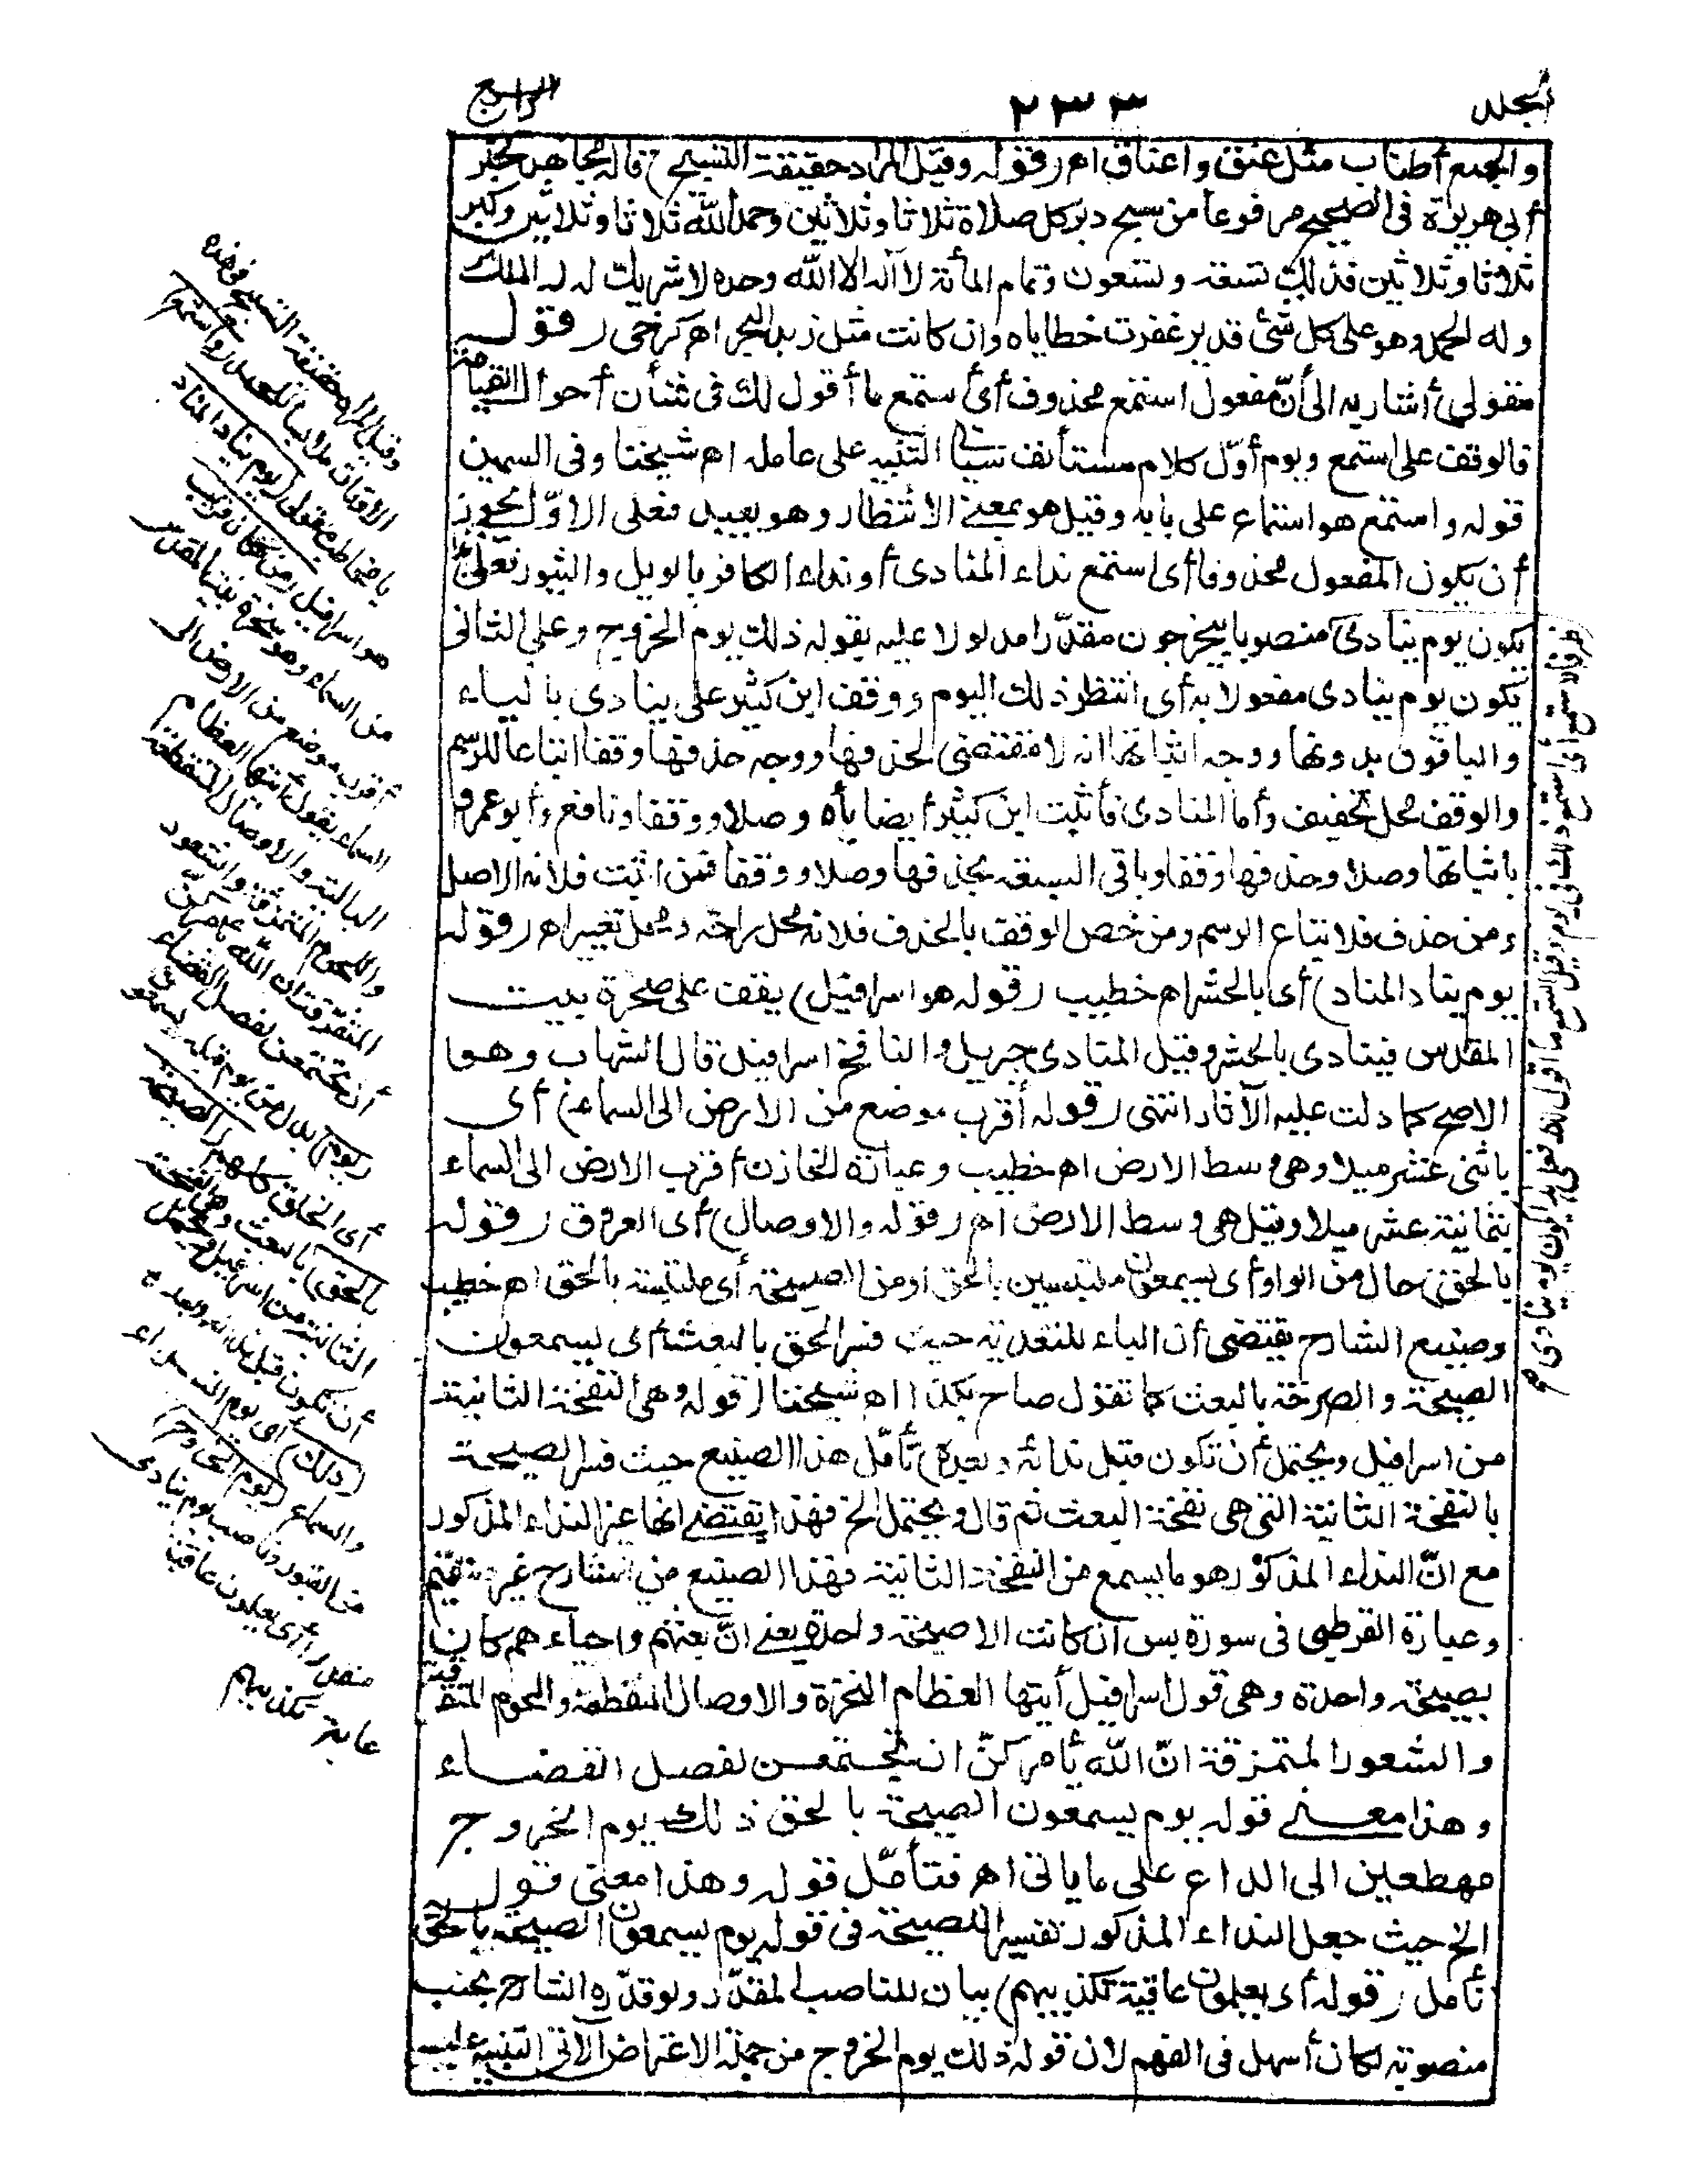 المجلد ٢٣٣ الرابع
والجمع أطناب مثل عنق واعناق اھ (قوله وقيل المراد حقيقة التسبيح) قاله مجاهد لخبر
أبي هريرة في الصحيح مرفوعا من سبح دبر كل صلاة ثلاثا وثلاثين وحمد الله ثلاثا وثلاثين وكبر
ثلاثا وثلاثين فذلك تسعة وتسعون وتمام المائة لا اله الا الله وحده لا شريك له له الملك
وله الحمد وهو على كل شئ قدير غفرت خطاياه وان كانت مثل زبد البحر اھ كرخى (قوله
مقولى) أشار به الى أنّ مفعول استمع محذوف أى استمع ما أقول لك فى شأن أحوال القيامة
فالوقف على استمع ويوم أوّل كلام مستأنف سيأتى التنبيه على عامله اھ شيخنا وفى السمين
قوله واستمع هو استماع على بابه وقيل هو بمعنى الانتظار وهو بعيد فعلى الاوّل يجوز
أن يكون المفعول محذوفا أى استمع نداء المنادى أو نداء الكافر بالويل والثبور فعلى هذا
يكون يوم ينادى منصوبا بيخرجون مقدّرا مدلولا عليه بقوله ذلك يوم الخروج وعلى الثانى
يكون يوم ينادى مفعولا به أى انتظر ذلك اليوم ووقف ابن كثير على ينادى بالياء
والباقون بدونها ووجه اثباتها انه لا مقتضى لحذفها ووجه حذفها وقفا اتباعا للرسم
والوقف محل تخفيف وأما المنادى فأثبت ابن كثير أيضا ياه وصلا ووقفا ونافع وأبو عمرو
باثباتها وصلا وحذفها وقفا وباقى السبعة بحذفها وصلا ووقفا فمن اثبت فلانه الاصل
ومن حذف فلاتباع الرسم ومن خص الوقف بالحذف فلانه محل راحة ومحل تغيير اھ (قوله
يوم يناد المناد) أى بالحشر اھ خطيب (قوله هو اسرافيل) يقف على صخرة بيت
المقدس فينادى بالحشر وقيل المنادى جبريل والنافخ اسرافيل قال الشهاب وهوا
الاصح كما دلت عليه الآثار انتهى (قوله أقرب موضع من الارض الى السماء) أى
باثنى عشر ميلا وهى وسط الارض اھ خطيب وعبارة الخازن أقرب الارض الى السماء
بثمانية عشر ميلا وقيل هى وسط الارض اھ (قوله والاوصال) أى العروق (قوله
بالحق) حال من الواو أى يسمعون ملتبسين بالحق أو من الصيحة أى ملتبسة بالحق اھ خطيب
وصنيع الشارح يقتضى أن الباء للتعدية حيث فسر الحق بالبعث أى يسمعون
الصيحة والصرخة بالبعث كما تقول صاح بكذا اھ شيخنا (قوله وهى النفخة الثانية
من اسرافيل ويحتمل أن تكون قبل ندائه وبعده) تأمّل هذا الصنيع حيث فسر الصيحة
بالنفخة الثانية التى هى نفخة البعث ثم قال ويحتمل الخ فهذا يقتضى انها غير النداء المذكور
مع انّ النداء المذكور هو ما يسمع من النفخة الثانية فهذا الصنيع من الشارح غير مستقيم
وعبارة القرطبى فى سورة يس ان كانت الا صيحة واحدة يعنى انّ بعثهم واحياءهم كان
بصيحة واحدة وهى قول اسرافيل أيتها العظام النخرة والاوصال المتقطعة واللحوم المتفرقة
والشعور المتمزقة انّ الله يأمركنّ ان تجتمعن لفصل القضاء
وهذا معنى قوله يوم يسمعون الصيحة بالحق ذلك يوم الخروج
مهطعين الى الداع على ما ياتى اھ فتأمّل قوله وهذا معنى قول
الخ حيث جعل النداء المذكور تفسيرا للصيحة فى قوله يوم يسمعون الصيحة بالحق
تأمل (قوله أى يعلمون عاقبة تكذيبهم) بيان للناصب المقدّر ولو قدّره الشارح بجنب
منصوبه لكان أسهل فى الفهم لان قوله ذلك يوم الخروج من جملة الاعتراض الآتى التنبيه عليه
وقيل المراد حقيقة التسبيح فى هذه
الاوقات ملابسا للحمد (واستمع)
يا مخاطب مقولى (يوم يناد المناد)
هو اسرافيل (من مكان قريب)
من السماء وهو صخرة بيت المقدس
أقرب موضع من الارض الى
السماء يقول أيتها العظام
البالية والاوصال المتقطعة
واللحوم المتمزقة والشعور
المتفرقة ان الله يأمركنّ
أن تجتمعن لفصل القضاء
(يوم) بدل من يوم قبله (يسمعون)
أى الخلق كلهم (الصيحة
بالحق) بالبعث وهى النفخة
الثانية من اسرافيل ويحتمل
أن تكون قبل ندائه وبعده
(ذلك) أى يوم النداء
والسماع (يوم الخروج)
من القبور وناصب يوم ينادى
مقدر أى يعلمون عاقبة
عاقبة تكذيبهم